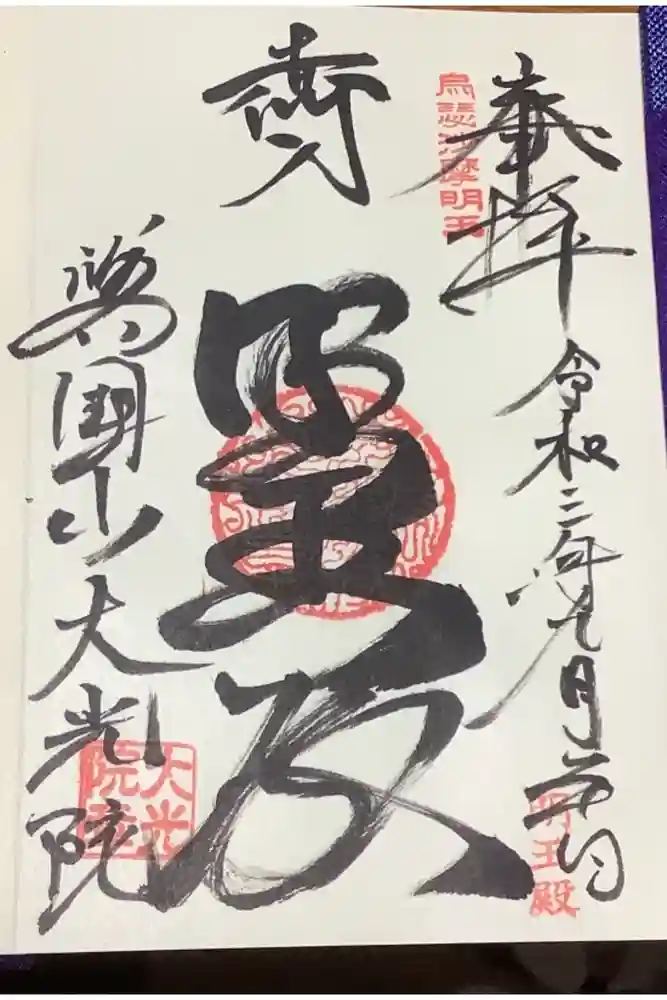 奉拝
烏瑟沙摩明王
令和三年九月
明王殿
明王殿
興國山大光院
大光
院